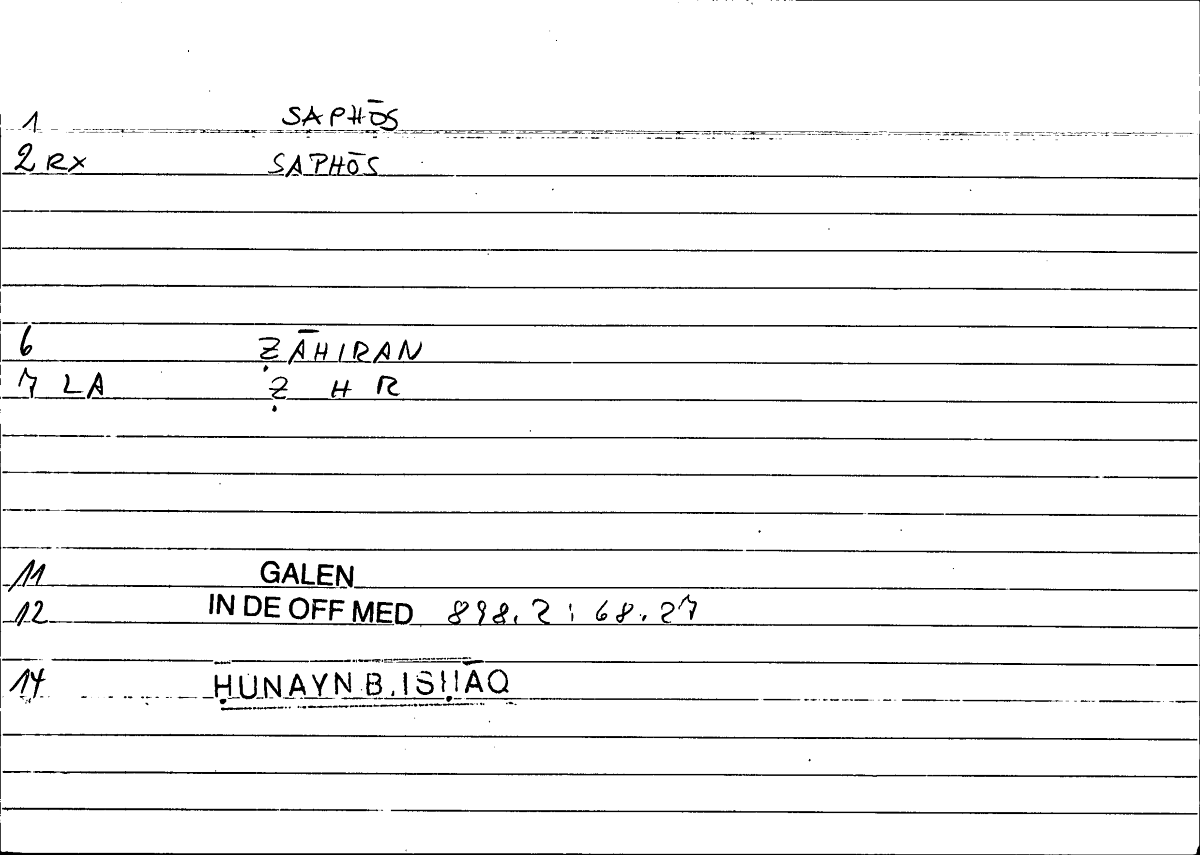 1 SAPHŌS
2 RX SAPHŌS
6 ẒĀHIRAN
7 LA Ẓ H R
11 GALEN
12 IN DE OFF MED 898.2 : 68.27
14 ḤUNAYN B. ISḤĀQ